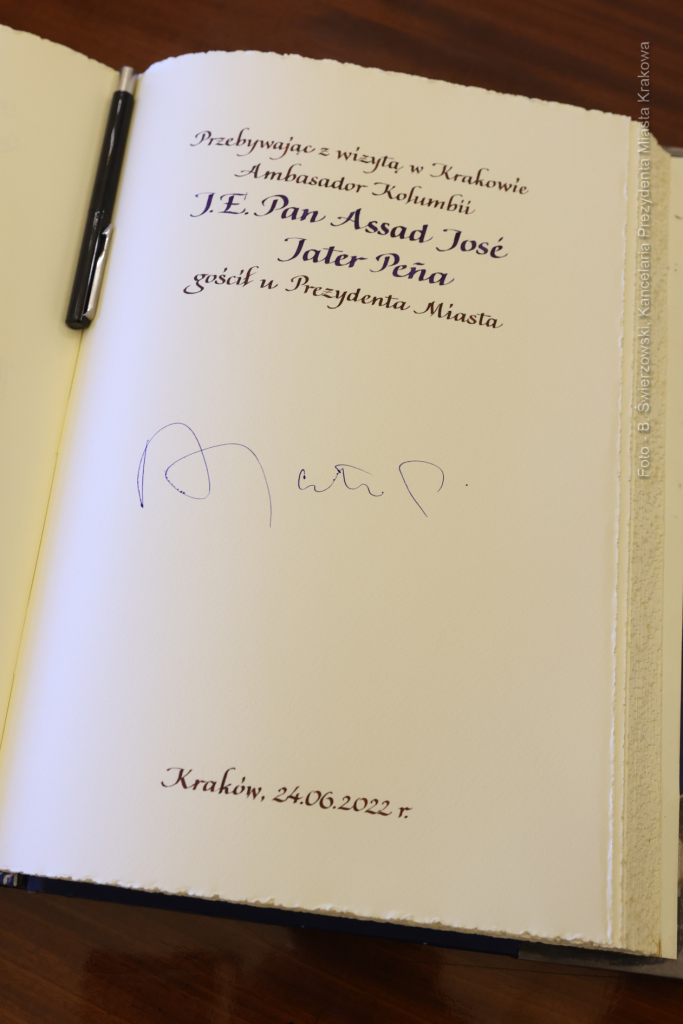 Przebywając z wizytą w Krakowie
Ambasador Kolumbii
J.E. Pan Assad José
Jater Peña
gościł u Prezydenta Miasta
Kraków, 24.06.2022 r.
Foto - B. Świerzowski, Kancelaria Prezydenta Miasta Krakowa